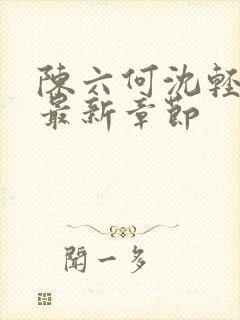 陳六何沈輕
最新章節
聞一多